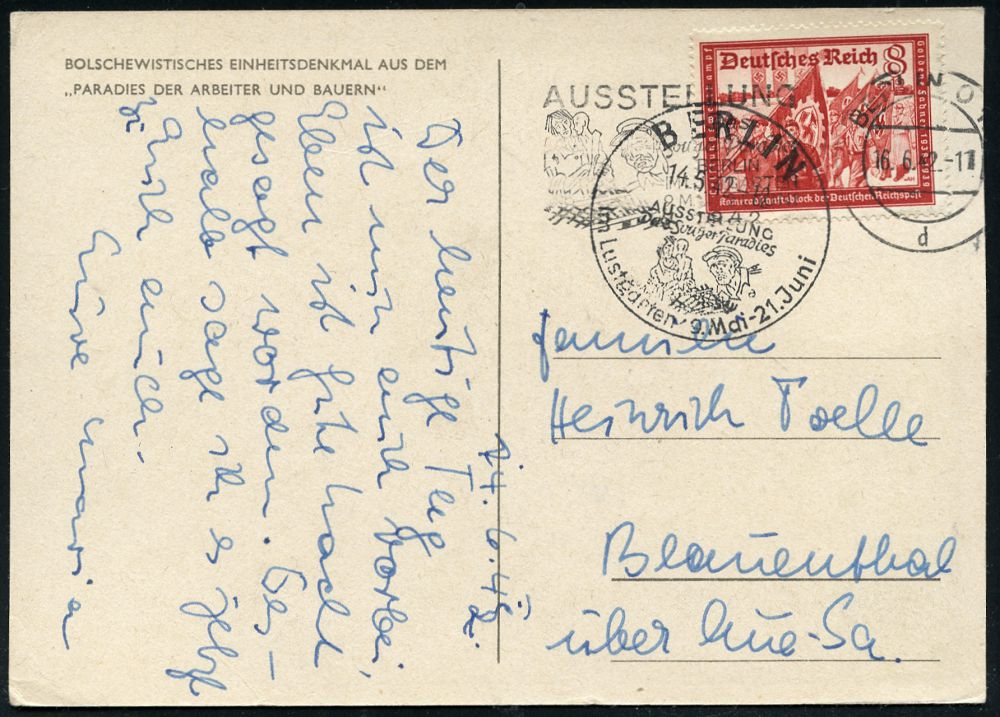 BOLSCHEWISTISCHES EINHEITSDENKMAL AUS DEM
„PARADIES DER ARBEITER UND BAUERN“
14. 6. 42.
Der heutige Tag
ist nun auch vorbei,
Eben ist gute Nacht
gesagt worden. Des-
halb sage ich es jetzt
Euch auch.
Eure Maria
Deutsches Reich 8
Goldenes Sahne 1939
Kameradschaftsblock der Deutschen Reichspost
AUSSTELLUNG
BERLIN
BERLIN
14.5.42
AUSSTELLUNG
Das Sowjet-Paradies
im Lustgarten, 9. Mai-21. Juni
16.6.42-11
d
Familie
Heinrich Toelle
Blauenthal
über Aue-Sa.